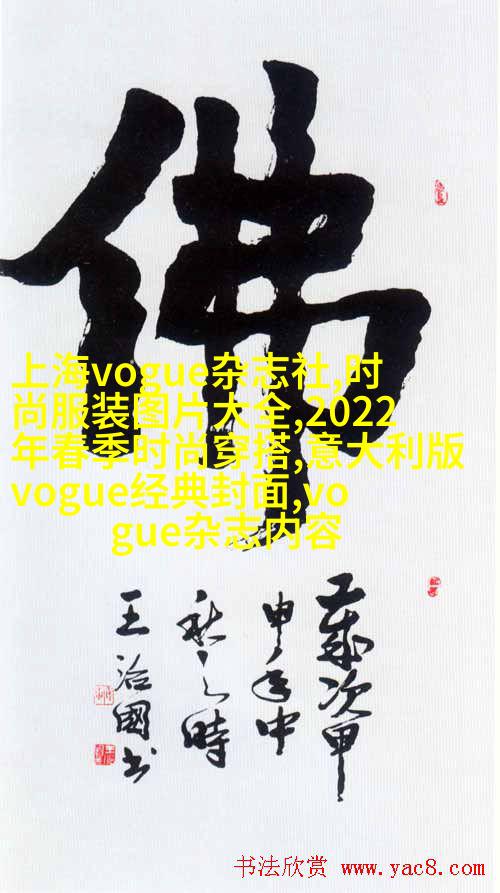 佛
上海vogue杂志社,时
尚服装图片大全,2022
年春季时尚穿搭,意大利版
vogue经典封面,vo
gue杂志内容
歲次甲
申年中
秋之時
王治國书
书法欣赏 www.yac8.com